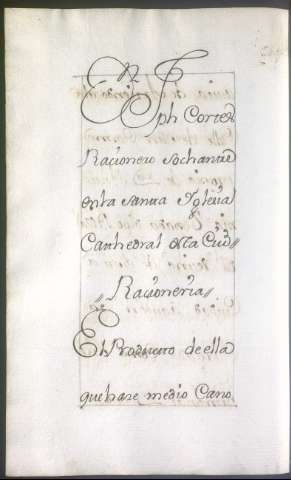 Dn Jph Cortes
Racionero Sochantre
en la santa Yglesia
Cathedral de la Ciud
Racioneria
El Producto de ella
que hace medio Cano